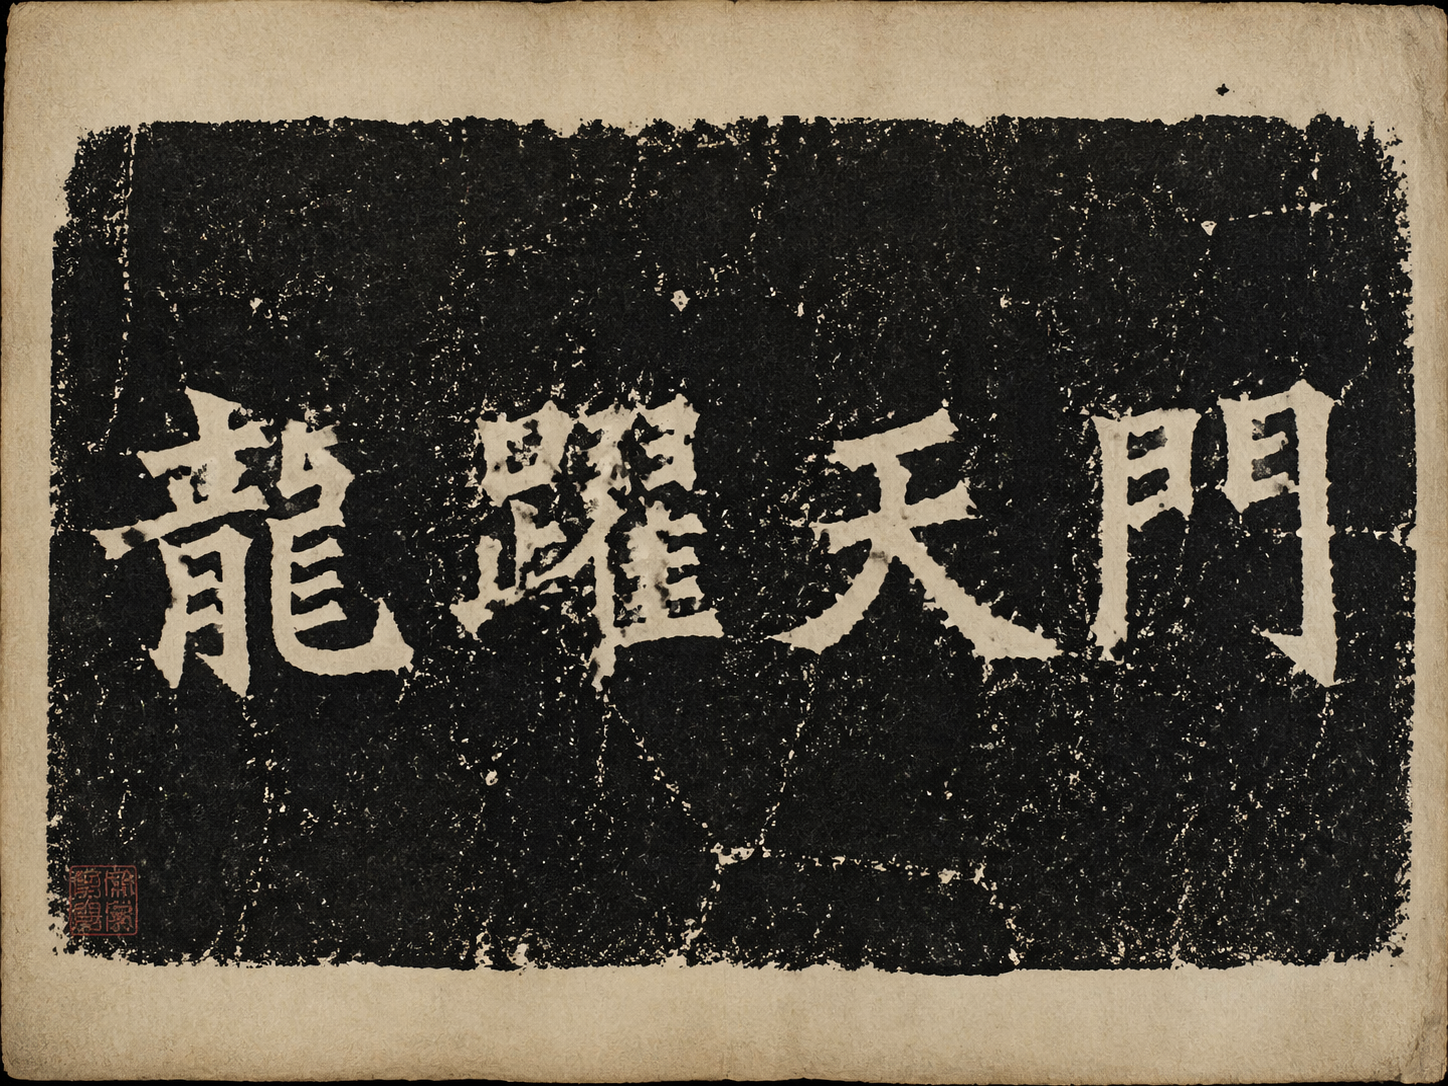 龍躍天門